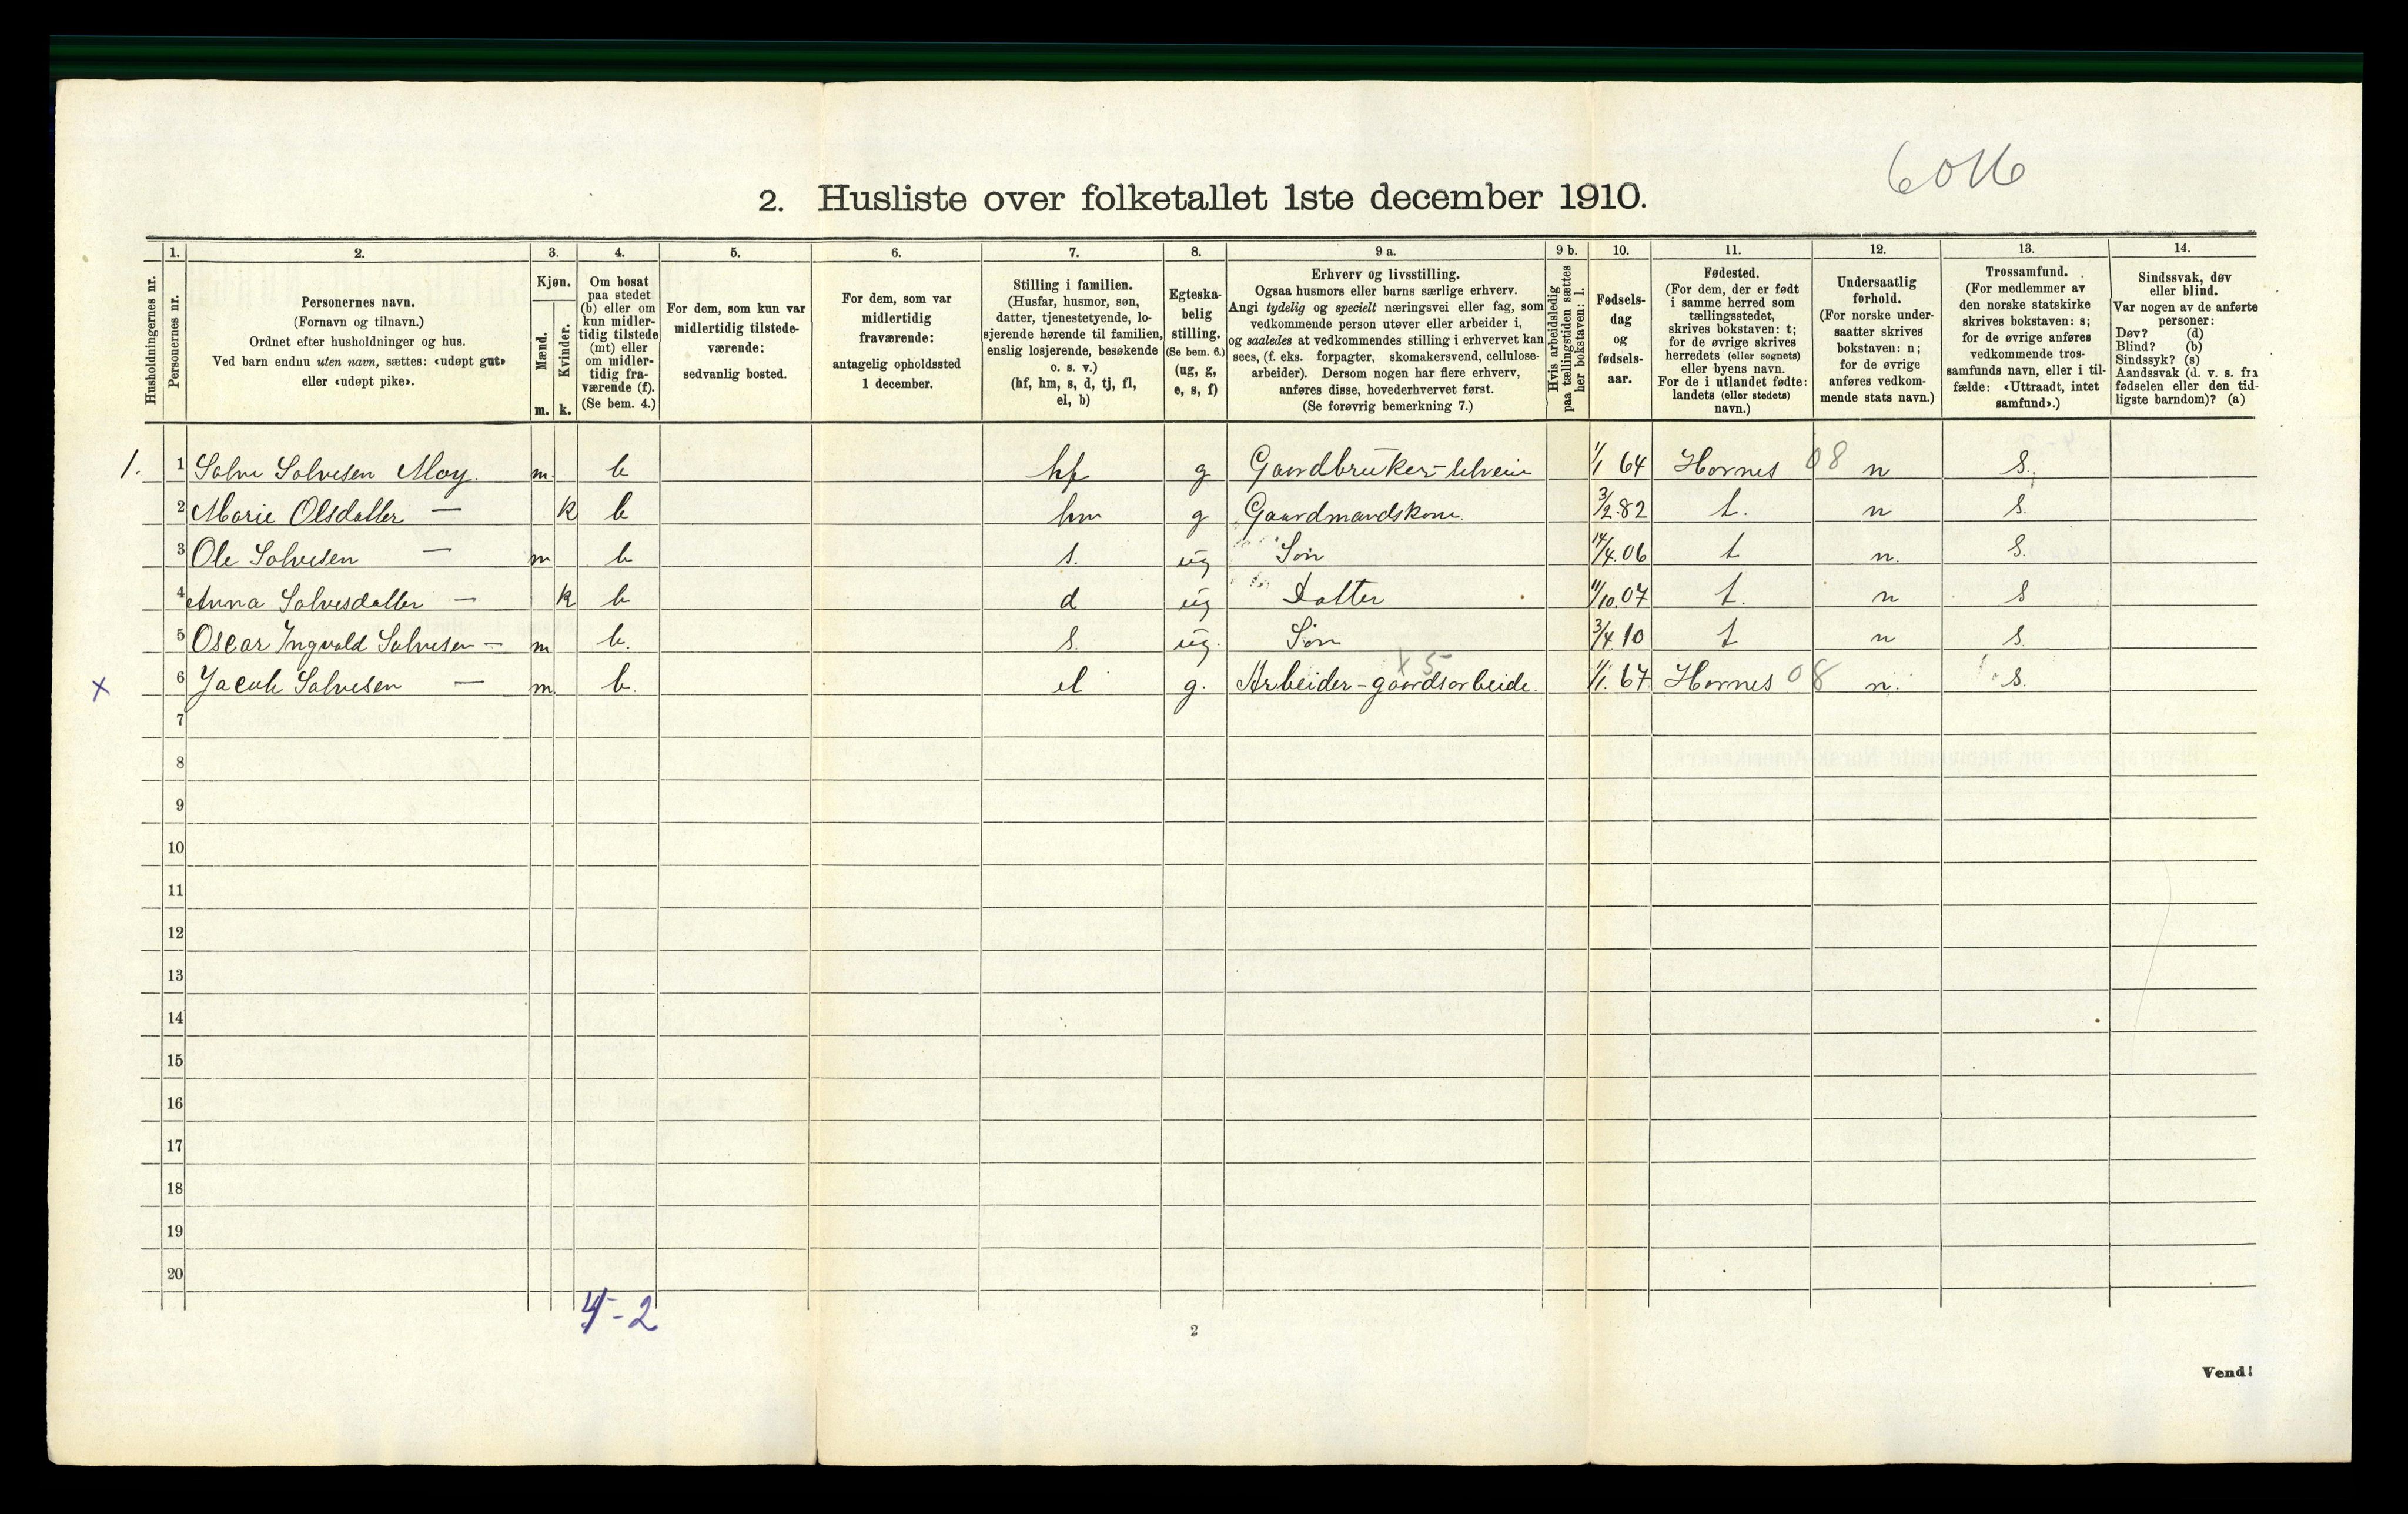 6016
2. Husliste over folketallet 1ste december 1910.
Husholdningernes nr.
1.
Personernes nr.
2.
Personernes navn.
(Fornavn og tilnavn.)
Ordnet efter husholdninger og hus.
Ved barn endnu uten navn, sættes: «udøpt gut»
eller «udøpt pike».
3.
Kjøn.
Mænd.
m.
Kvinder.
k.
4.
Om bosat
paa stedet
(b) eller om
kun midler-
tidig tilstede
(mt) eller
om midler-
tidig fra-
værende (f).
(Se bem. 4.)
5.
For dem, som kun var
midlertidig tilstede-
værende:
sedvanlig bosted.
6.
For dem, som var
midlertidig
fraværende:
antagelig opholdssted
1 december.
7.
Stilling i familien.
(Husfar, husmor, søn,
datter, tjenestetyende, lo-
sjerende hørende til familien,
enslig losjerende, besøkende
o. s. v.)
(hf, hm, s, d, tj, fl,
el, b)
8.
Egteska-
belig
stilling.
(Se bem. 6.)
(ug, g,
e, s, f)
9 a.
Erhverv og livsstilling.
Ogsaa husmors eller barns særlige erhverv.
Angi tydelig og specielt næringsvei eller fag, som
vedkommende person utøver eller arbeider i,
og saaledes at vedkommendes stilling i erhvervet kan
sees, (f. eks. forpagter, skomakersvend, cellulose-
arbeider). Dersom nogen har flere erhverv,
anføres disse, hovederhvervet først.
(Se forøvrig bemerkning 7.)
9 b.
Hvis arbeidsledig
paa tællingstiden sættes
her bokstaven: l.
10.
Fødsels-
dag
og
fødsels-
aar.
11.
Fødested.
(For dem, der er født
i samme herred som
tællingsstedet,
skrives bokstaven: t;
for de øvrige skrives
herredets (eller sognets)
eller byens navn.
For de i utlandet fødte:
landets (eller stedets)
navn.)
12.
Undersaatlig
forhold.
(For norske under-
saatter skrives
bokstaven: n;
for de øvrige
anføres vedkom-
mende stats navn.)
13.
Trossamfund.
(For medlemmer av
den norske statskirke
skrives bokstaven: s;
for de øvrige anføres
vedkommende tros-
samfunds navn, eller i til-
fælde: «Uttraadt, intet
samfund».)
14.
Sindssvak, døv
eller blind.
Var nogen av de anførte
personer:
Døv? (d)
Blind? (b)
Sindssyk? (s)
Aandssvak (d. v. s. fra
fødselen eller den tid-
ligste barndom)? (a)
1. 1 Salve Salvesen Moy. m. b hf g Gaardbruker-selveier 1/1 64 Hornes 08 n S.
2 Marie Olsdatter — k b hm g Gaardmandskone. 3/2 82 t. n S.
3 Ole Salvesen — m b s. ug Søn 14/4. 06 t n. S.
4 Anna Salvesdatter — k b d ug Datter 11/10. 07 t. n S
5 Oscar Ingvald Salvesen — m b. s. ug. Søn 3/4 10 t n S.
x5
x 6 Jacob Salvesen — m. b. el g. Arbeider-gaardsarbeide. 1/1. 67 Hornes 08 n. S.
7
8
9
10
11
12
13
14
15
16
17
18
19
20
4-2
2
Vend!